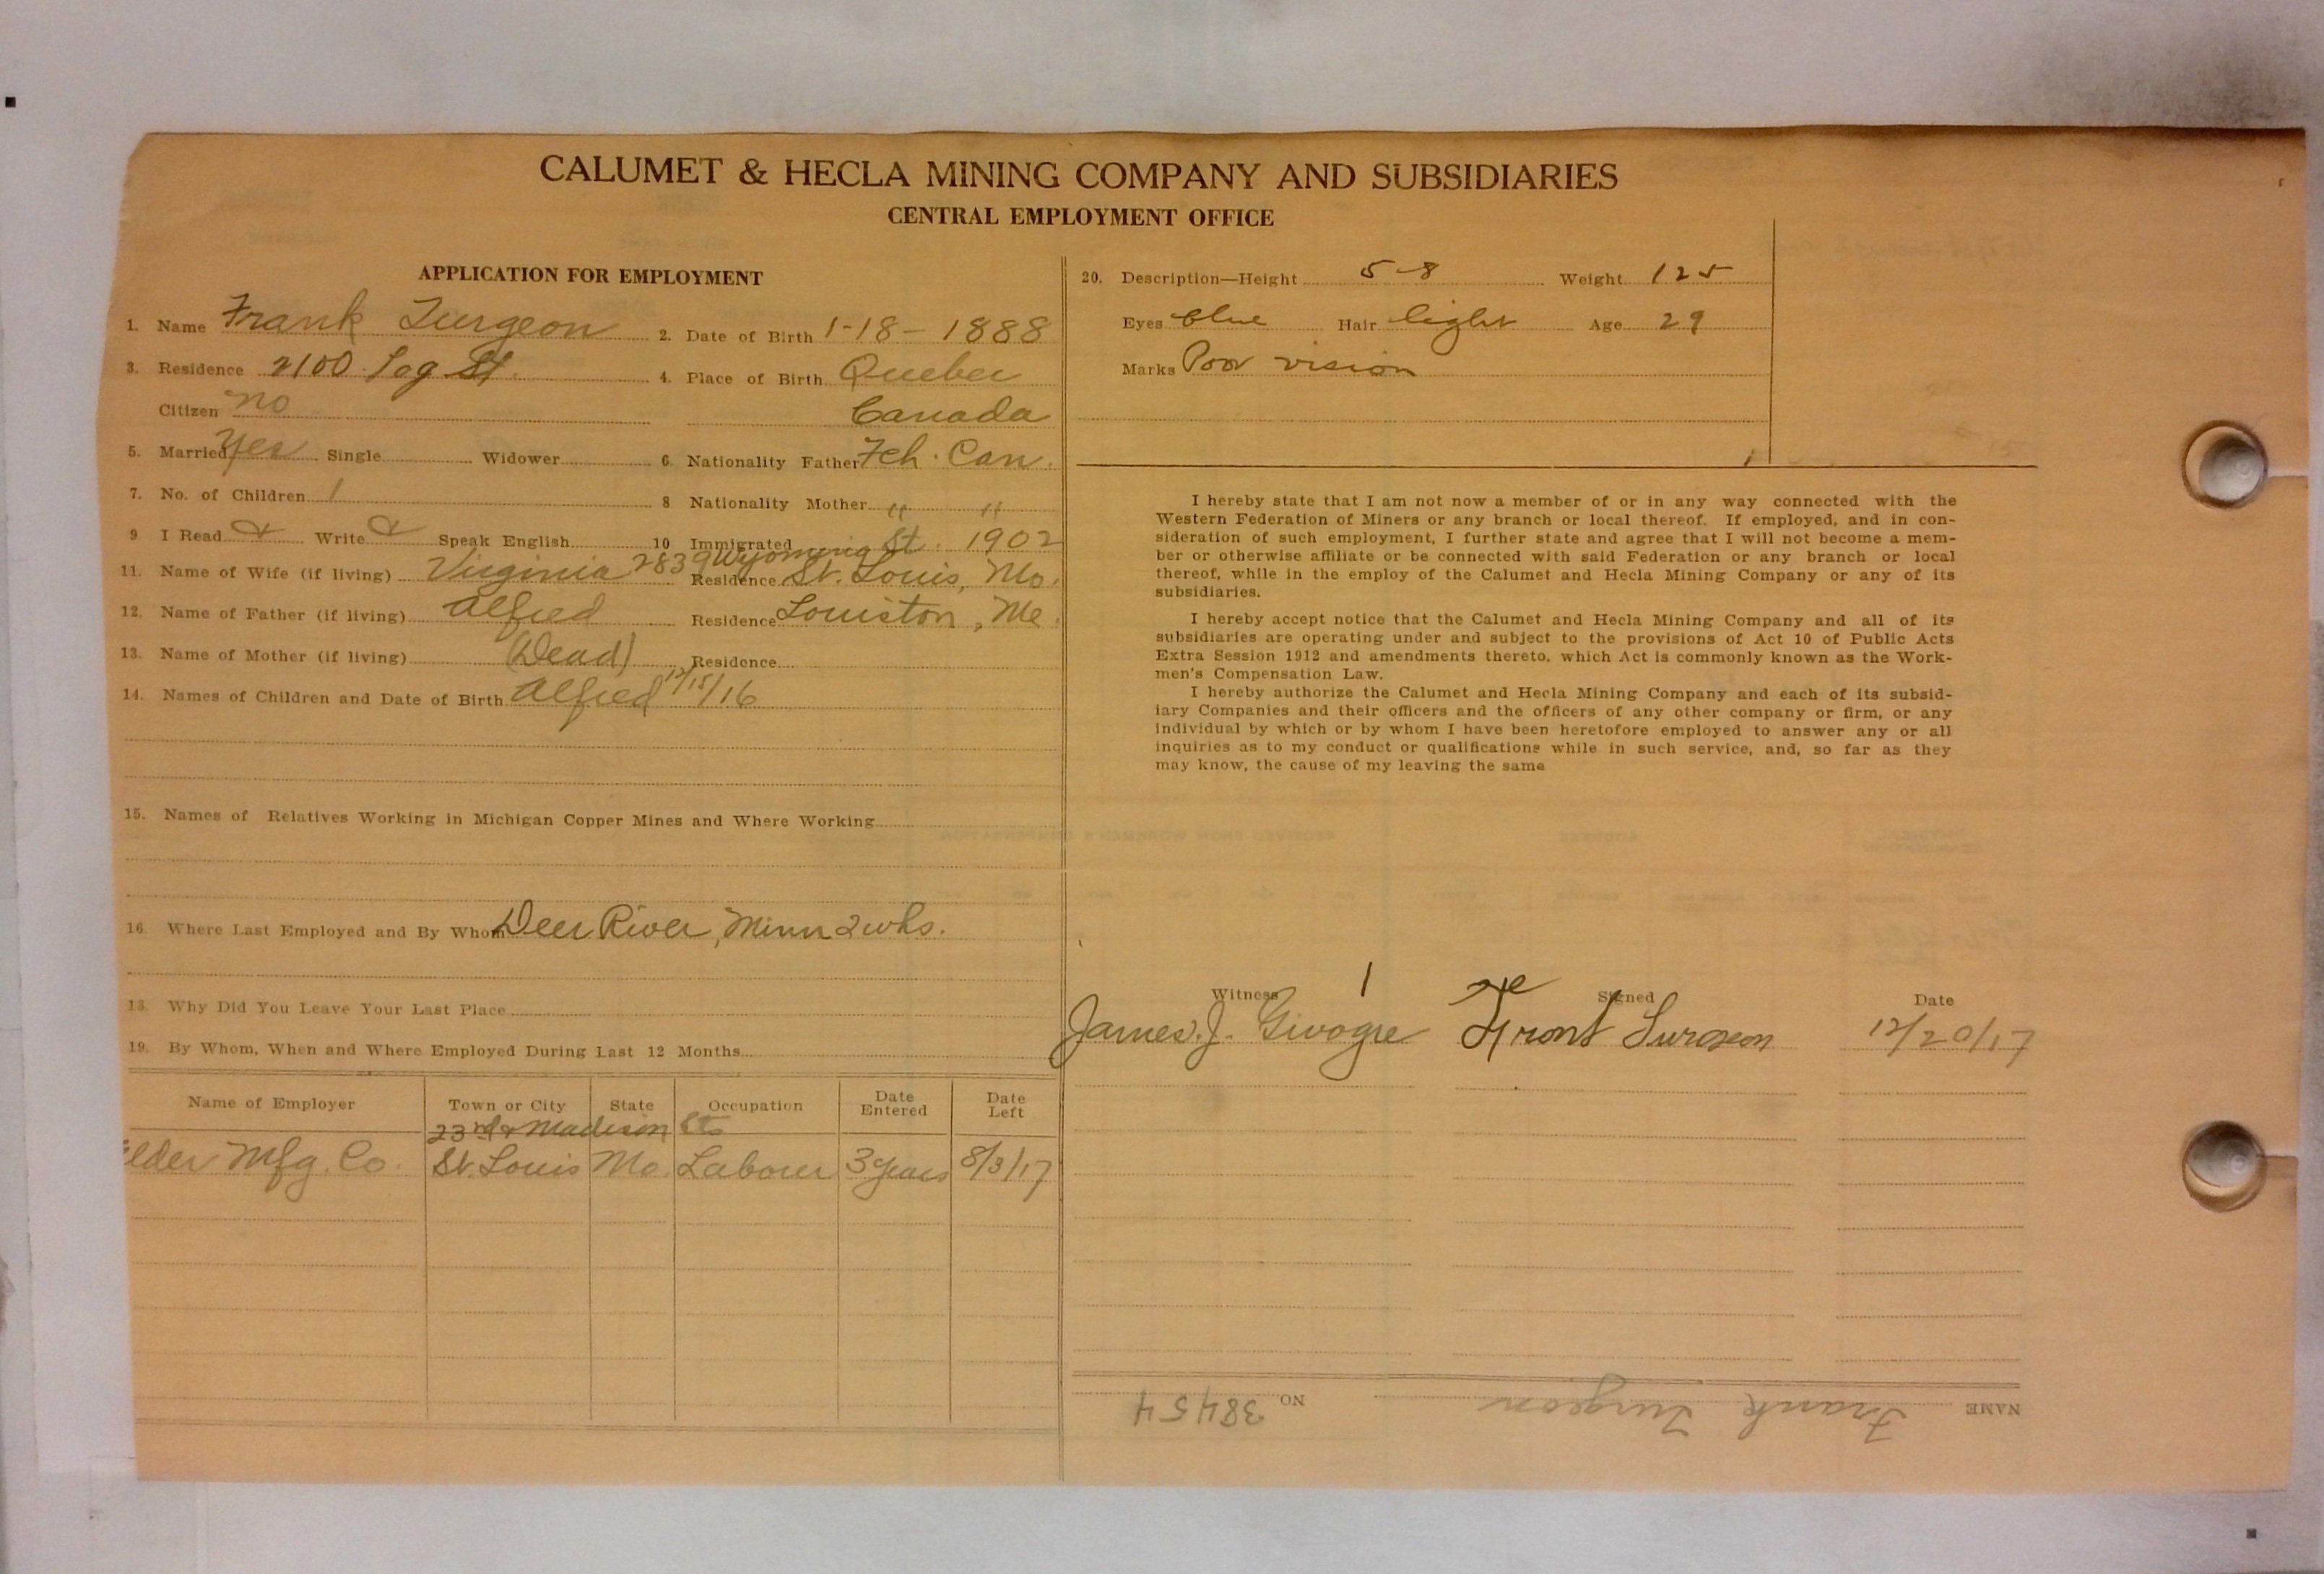 CALUMET & HECLA MINING COMPANY AND SUBSIDIARIES
CENTRAL EMPLOYMENT OFFICE
APPLICATION FOR EMPLOYMENT
1. Name Frank Turgeon 2. Date of Birth 1-18-1888
3. Residence 2100 Log St. 4. Place of Birth Quebec
Citizen no Canada
5. Married Yes Single Widower 6. Nationality Father Fch. Can.
7. No. of Children 1 8 Nationality Mother " "
9 I Read & Write & Speak English 10 Immigrated 1902
11. Name of Wife (if living) Virginia Residence 2839 Wyoming St. St. Louis, Mo.
12. Name of Father (if living) Alfred Residence Louiston, Me.
13. Name of Mother (if living) (Dead) Residence
14. Names of Children and Date of Birth Alfred 12/15/16
15. Names of Relatives Working in Michigan Copper Mines and Where Working
16. Where Last Employed and By Whom Deer River, Minn 2 wks.
18. Why Did You Leave Your Last Place
19. By Whom, When and Where Employed During Last 12 Months
Name of Employer Town or City State Occupation Date Entered Date Left
23rd & Madison Sts
elder Mfg. Co. St. Louis Mo. Laborer 3 years 8/3/17
20. Description—Height 5-8 Weight 125
Eyes blue Hair light Age 29
Marks Poor vision
I hereby state that I am not now a member of or in any way connected with the
Western Federation of Miners or any branch or local thereof. If employed, and in con-
sideration of such employment, I further state and agree that I will not become a mem-
ber or otherwise affiliate or be connected with said Federation or any branch or local
thereof, while in the employ of the Calumet and Hecla Mining Company or any of its
subsidiaries.
I hereby accept notice that the Calumet and Hecla Mining Company and all of its
subsidiaries are operating under and subject to the provisions of Act 10 of Public Acts
Extra Session 1912 and amendments thereto, which Act is commonly known as the Work-
men's Compensation Law.
I hereby authorize the Calumet and Hecla Mining Company and each of its subsid-
iary Companies and their officers and the officers of any other company or firm, or any
individual by which or by whom I have been heretofore employed to answer any or all
inquiries as to my conduct or qualifications while in such service, and, so far as they
may know, the cause of my leaving the same
Witness Signed Date
James. J. 12/20/17
NAME Frank Turgeon NO. 38454